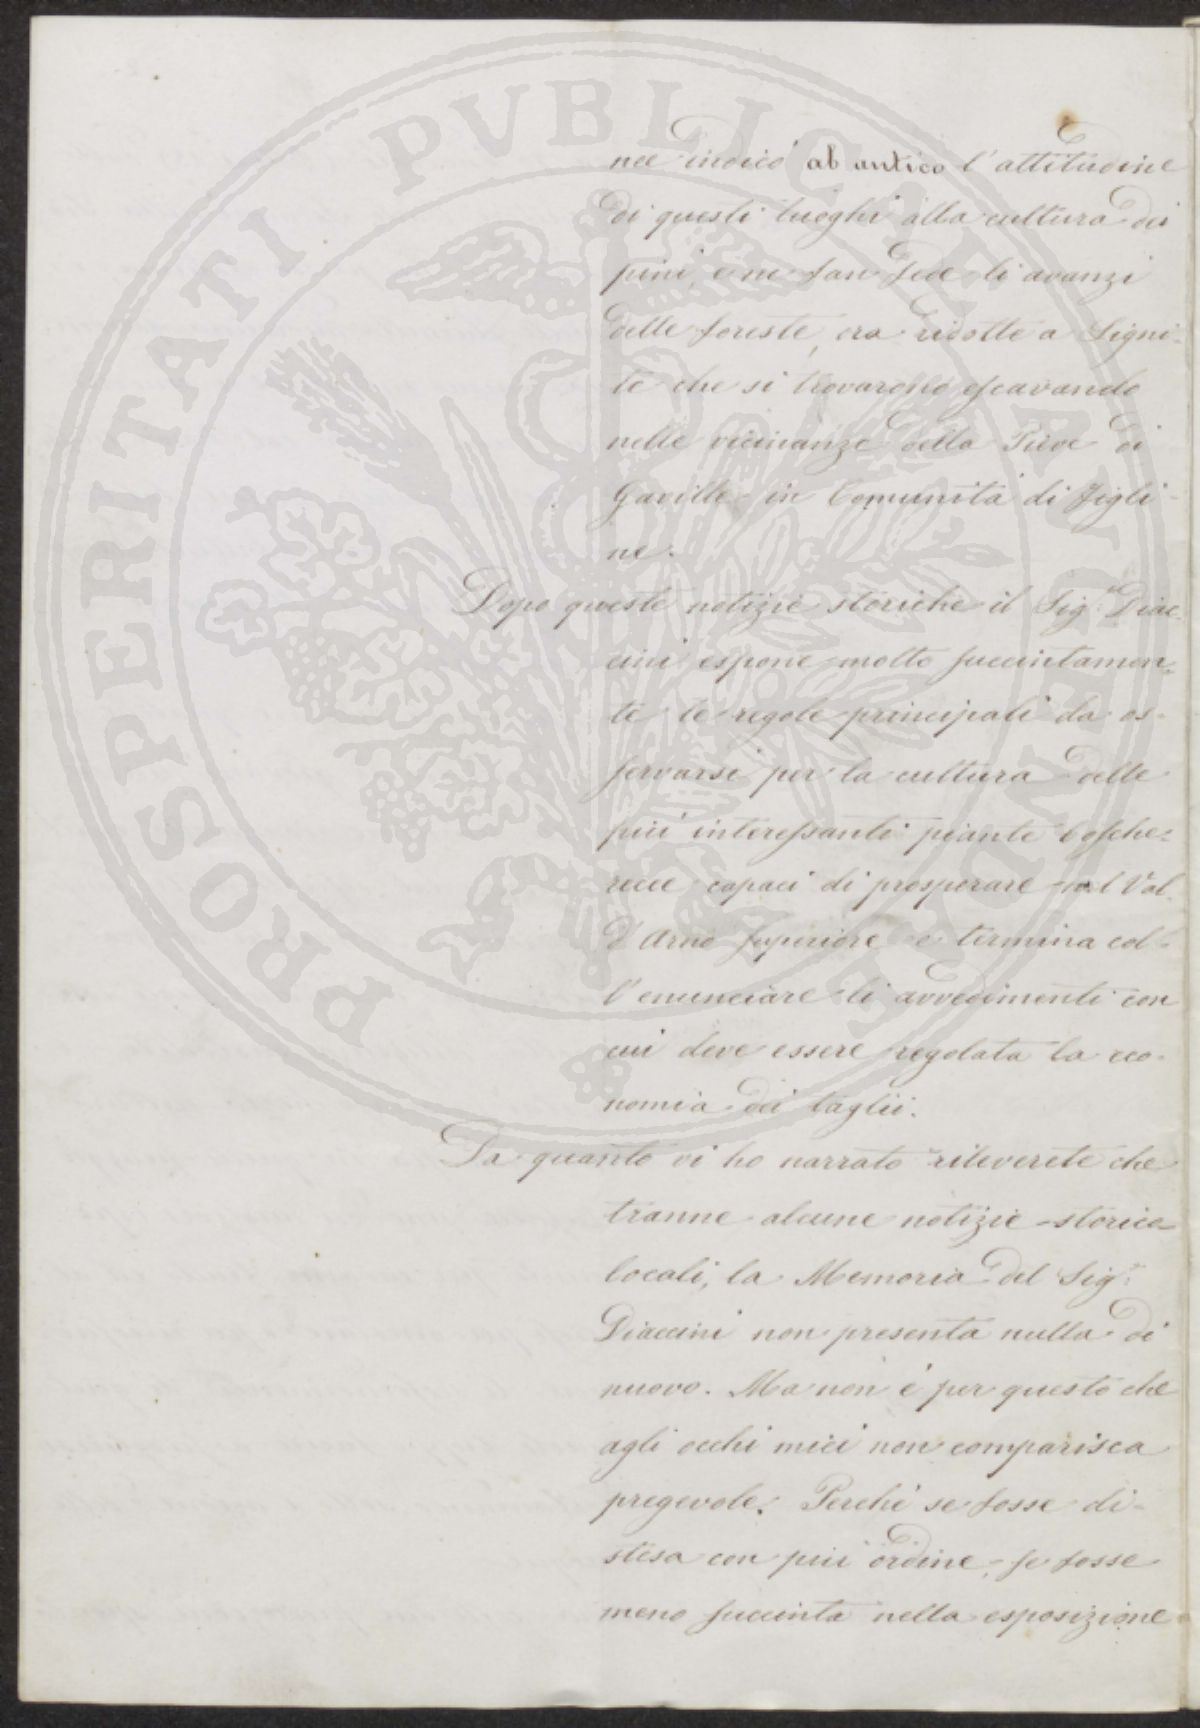 PROSPERITATI PVBLICAE AVGENDAE
nee indicò ab antico l'attitudine
di questi luoghi alla cultura dei
pini, e ne fan fede li avanzi
delle foreste, ora ridotte a Ligni-
te che si trovarono escavando
nelle vicinanze della Pieve di
Gaville in Comunità di Figli-
ne.
Dopo queste notizie storiche il Sig.r Diac-
cini espone molto succintamen-
te le regole principali da os-
servarsi per la cultura delle
più interessanti piante bosche-
recce capaci di prosperare nel Val
d'Arno Superiore e termina col-
l'enunciare li avvedimenti con
cui deve essere regolata la eco-
nomia dei taglii.
Da quanto vi ho narrato rileverete che
tranne alcune notizie storico-
locali, la Memoria del Sig.r
Diaccini non presenta nulla di
nuovo. Ma non è per questo che
agli occhi miei non comparisca
pregevole. Perchè se fosse di-
stesa con più ordine, se fosse
meno succinta nella esposizione